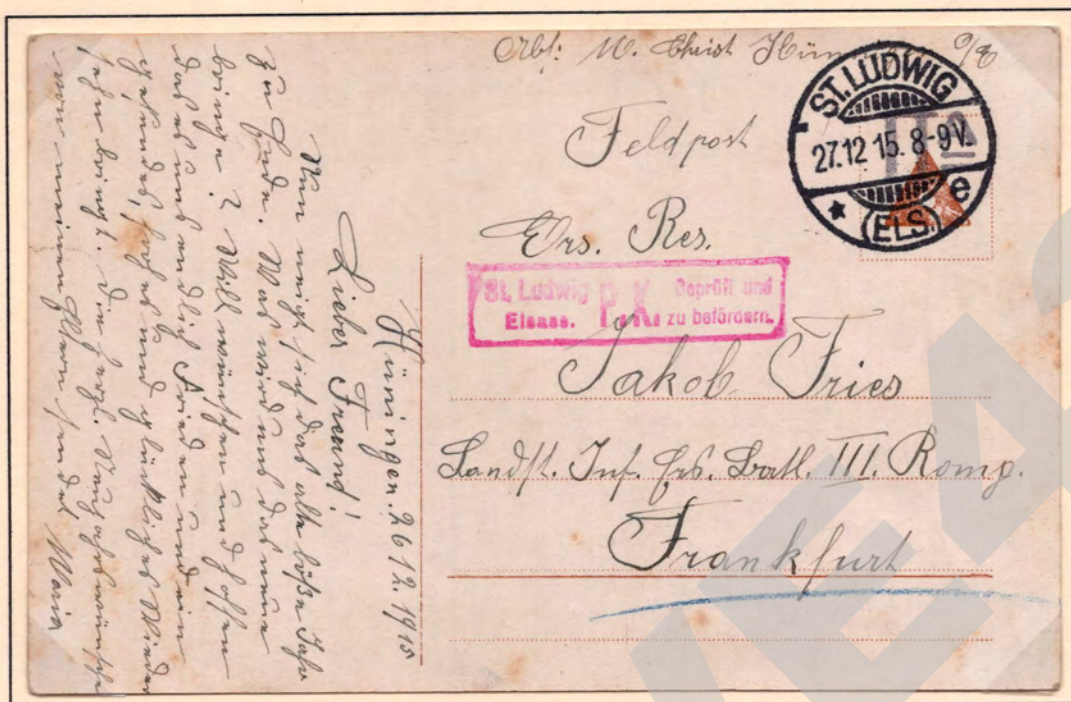 Abs: M. Christ Hüningen O/E
Feldpost
ST. LUDWIG
27.12 15. 8-9V.
* e
(ELS.)
Ers. Res.
St. Ludwig P.K. Geprüft und
Elsass. zu befördern.
Jakob Fries
Landst. Inf. Ers. Batl. III. Komp.
Frankfurt
Hüningen. 26.12.1915
Lieber Freund!
Nun neigt sich das alte böße Jahr
zu Ende. Was wird uns das neue
bringen? Will wünschen und hoffen
das es uns endlich Frieden und ein
gesundes, frohes und glückliches Wieder
sehen bringt. Die herzl. Neujahrswünsche
von meinen Eltern sendet Maria